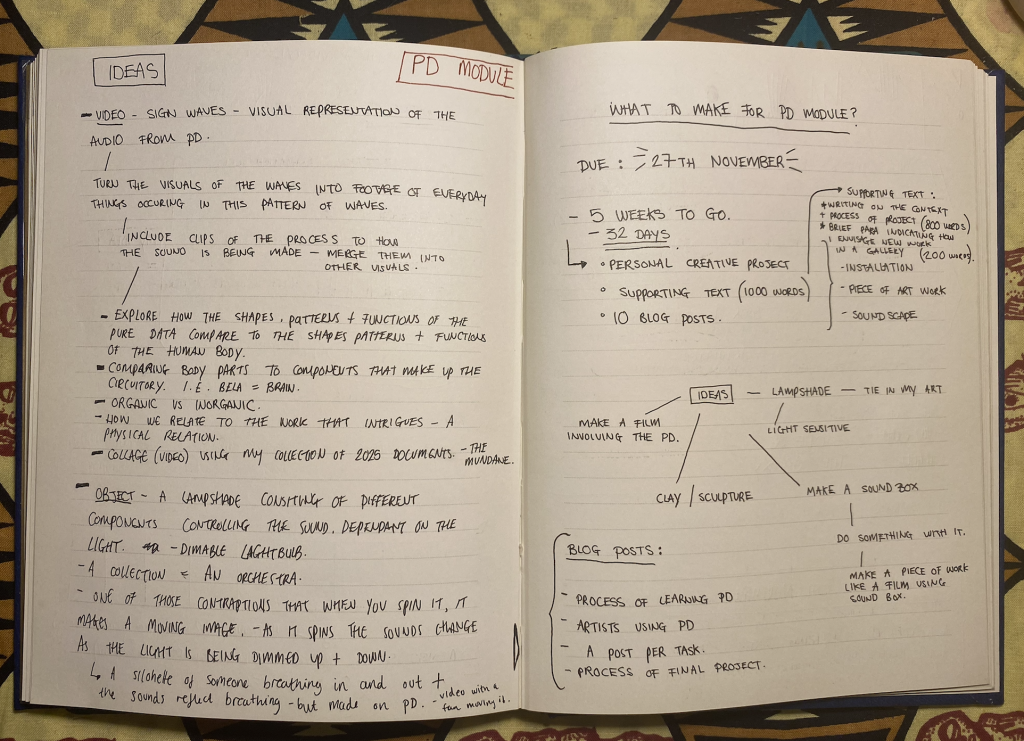 IDEAS
PD MODULE
- VIDEO - SIGN WAVES - VISUAL REPRESENTATION OF THE
AUDIO FROM PD.
TURN THE VISUALS OF THE WAVES INTO FOOTAGE OF EVERYDAY
THINGS OCCURING IN THIS PATTERN OF WAVES.
INCLUDE CLIPS OF THE PROCESS TO HOW
THE SOUND IS BEING MADE - MERGE THEM INTO
OTHER VISUALS.
- EXPLORE HOW THE SHAPES, PATTERNS + FUNCTIONS OF THE
PURE DATA COMPARE TO THE SHAPES PATTERNS + FUNCTIONS
OF THE HUMAN BODY.
- COMPARING BODY PARTS TO COMPONENTS THAT MAKE UP THE
CIRCUITORY. I.E. BELA = BRAIN.
- ORGANIC VS INORGANIC.
- HOW WE RELATE TO THE WORK THAT INTRIGUES - A
PHYSICAL RELATION.
- COLLAGE (VIDEO) USING MY COLLECTION OF 2025 DOCUMENTS. - THE
MUNDANE.
- OBJECT - A LAMPSHADE CONSITING OF DIFFERENT
COMPONENTS CONTROLLING THE SOUND. DEPENDANT ON THE
LIGHT. - DIMABLE LAGHTBULB.
- A COLLECTION = AN ORCHESTRA.
- ONE OF THOSE CONTRAPTIONS THAT WHEN YOU SPIN IT, IT
MAKES A MOVING IMAGE. - AS IT SPINS THE SOUNDS CHANGE
AS THE LIGHT IS BEING DIMMED UP + DOWN.
↳ A silohette of someone breathing in and out +
the sounds reflect breathing - but made on PD. - video with a
fan moving it.
WHAT TO MAKE FOR PD MODULE?
DUE: 27TH NOVEMBER
- 5 WEEKS TO GO.
- 32 DAYS
° PERSONAL CREATIVE PROJECT
° SUPPORTING TEXT (1000 WORDS)
° 10 BLOG POSTS.
SUPPORTING TEXT:
* WRITING ON THE CONTEXT
+ PROCESS OF PROJECT (800 WORDS)
* BRIEF PARA INDICATING HOW
I ENVISAGE NEW WORK
IN A GALLERY (200 WORDS).
- INSTALLATION
- PIECE OF ART WORK
- SOUNDSCAPE
IDEAS - LAMPSHADE - TIE IN MY ART
LIGHT SENSITIVE
MAKE A FILM
INVOLVING THE PD.
CLAY / SCULPTURE
MAKE A SOUND BOX
DO SOMETHING WITH IT.
MAKE A PIECE OF WORK
LIKE A FILM USING
SOUND BOX.
BLOG POSTS:
- PROCESS OF LEARNING PD
- ARTISTS USING PD
- A POST PER TASK.
- PROCESS OF FINAL PROJECT.